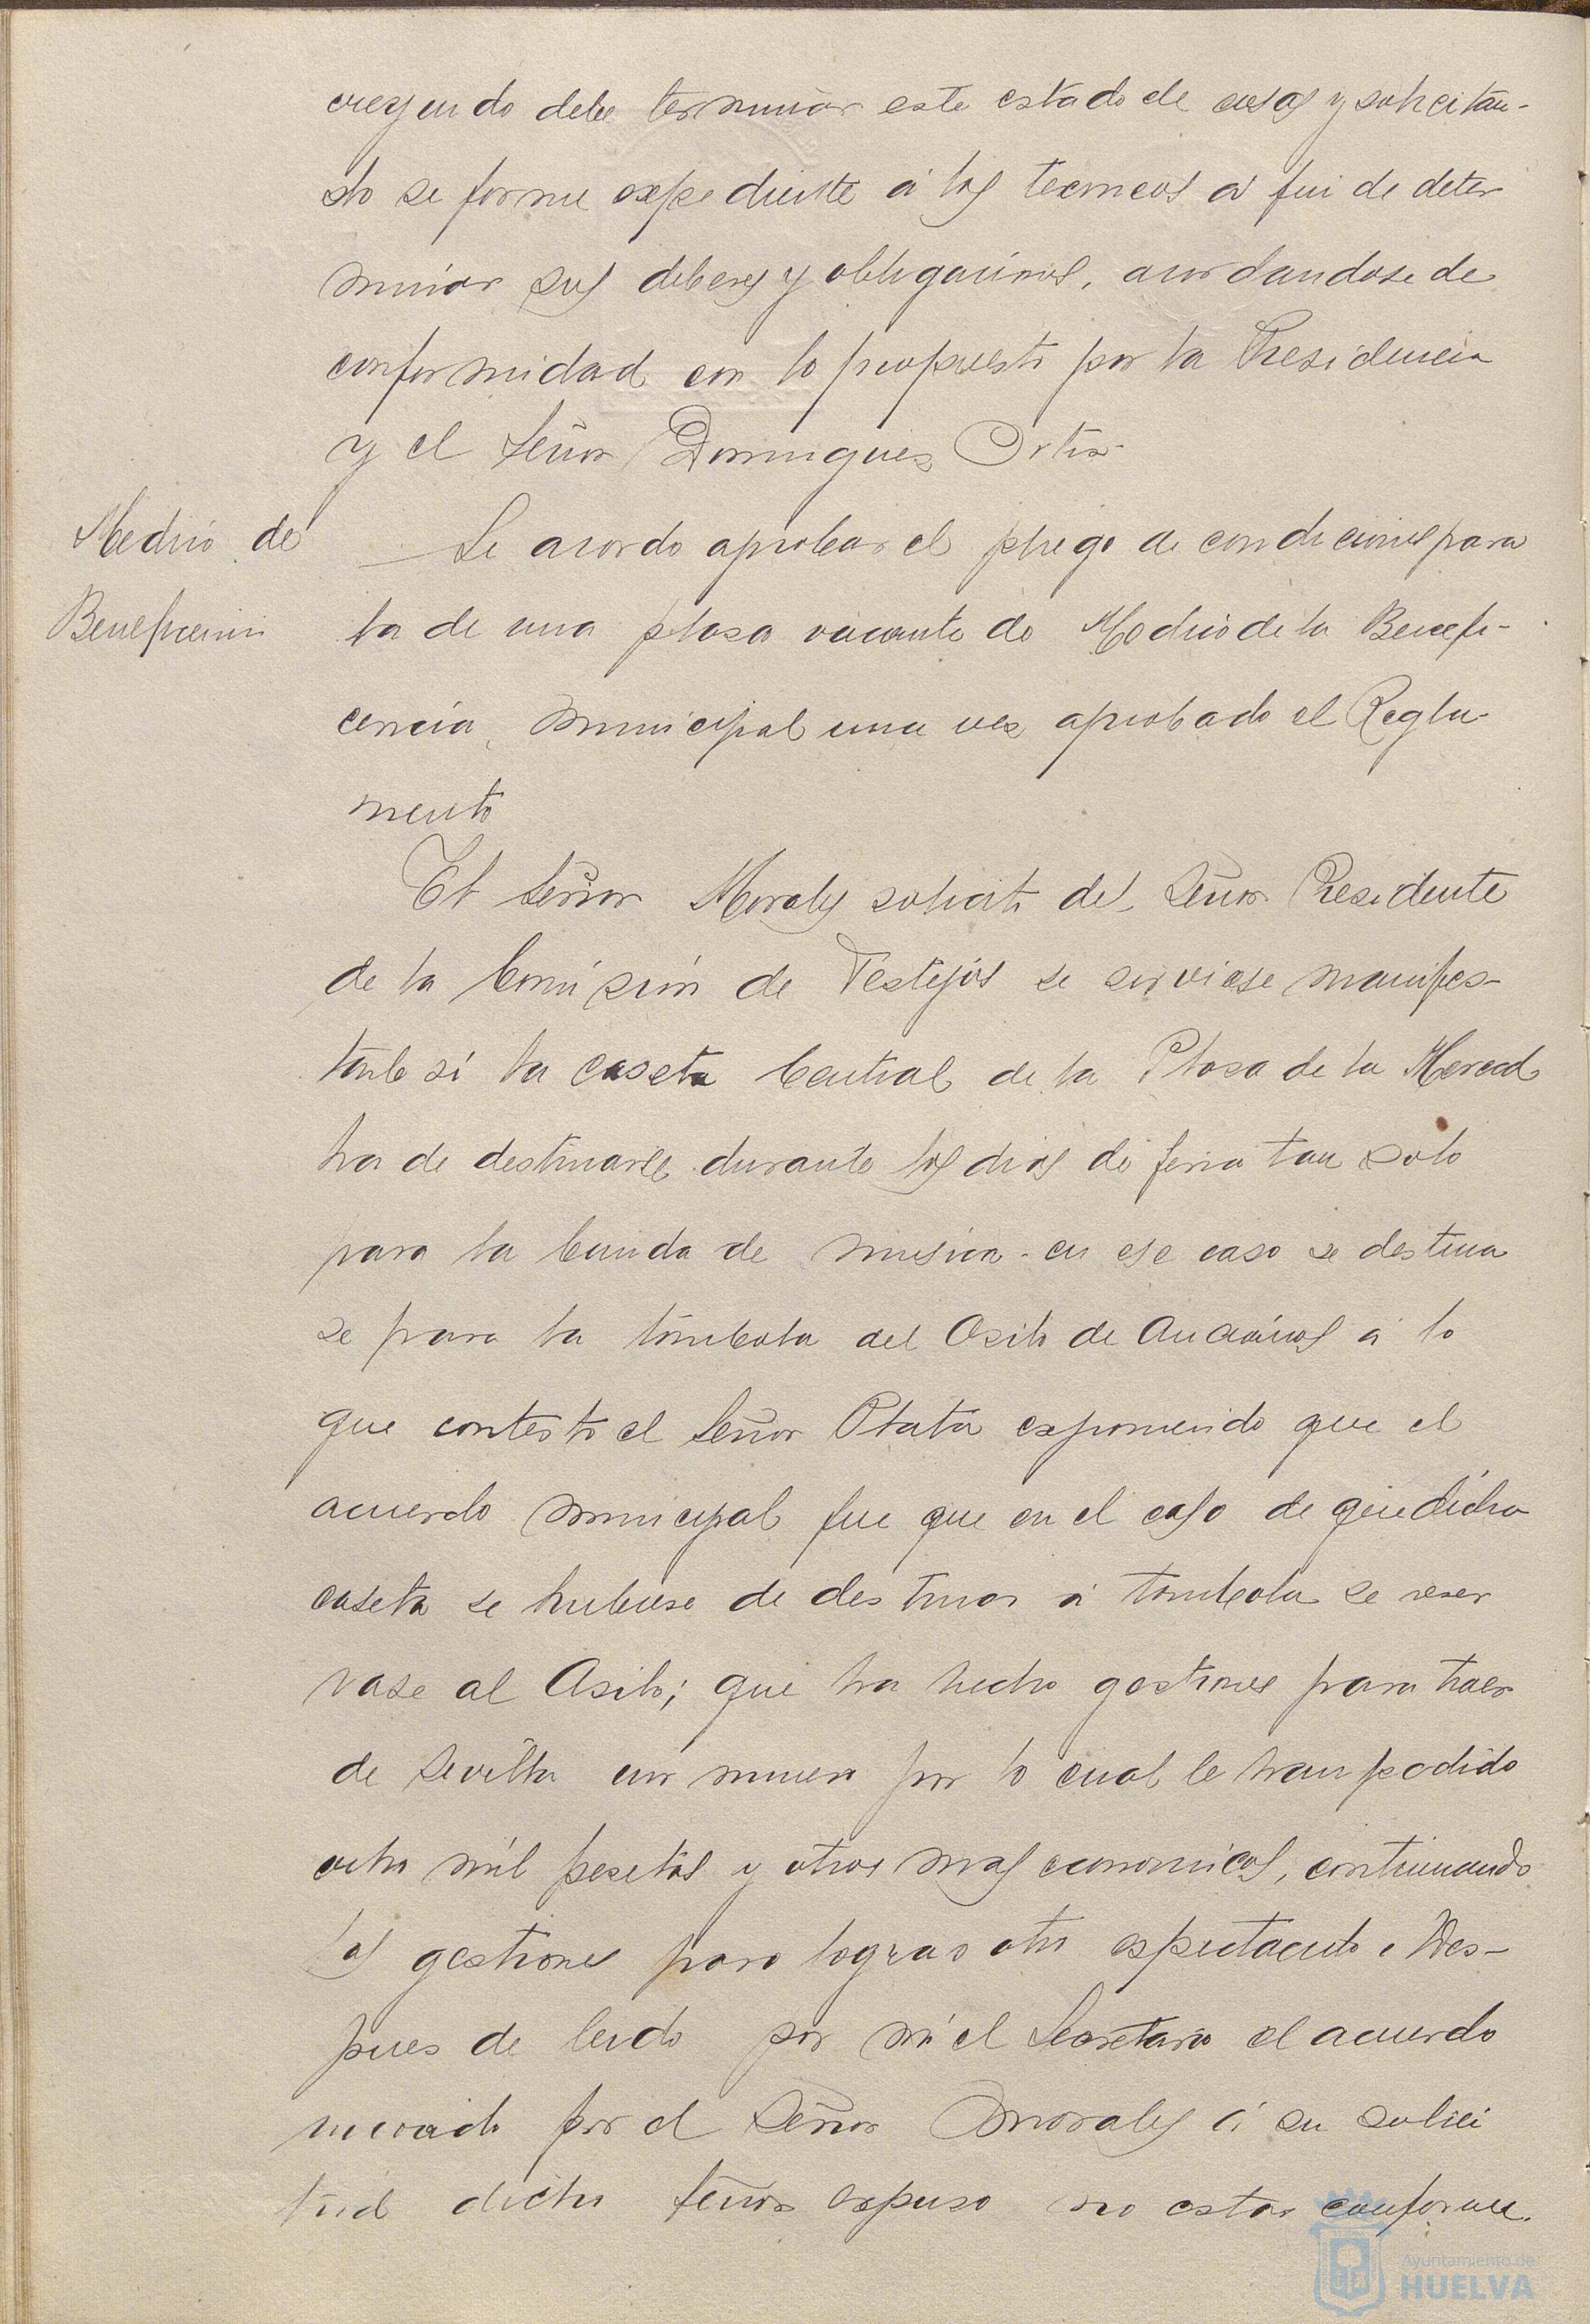 creyendo debe terminar este estado de cosas y solicitan-
do se forme expediente á los tecnicos á fin de deter
minar sus deberes y obligaciones, acordandose de
conformidad con lo propuesto por la Presidencia
y el Señor Dominguez Ortiz
Medico de
Beneficencia
Se acordo aprobar el pliego de condiciones para
la de una plaza vacante de Medico de la Benefi-
cencia, municipal una vez aprobado el Regla-
mento
El Señor Morales solicito del Señor Presidente
de la Comisión de Festejos se sirviese manifes-
tarle si la caseta Central de la Plaza de la Merced
ha de destinarse durante los dias de feria tan solo
para la banda de musica en ese caso se destina
se para la tómbola del Asilo de Ancianos á lo
que contesto el Señor Plata exponiendo que el
acuerdo municipal fue que en el caso de que dicha
caseta se hubiese de destinar á tombola se reser
vase al Asilo; que ha hecho gestiones para traer
de Sevilla un por lo cual le han pedido
ocho mil pesetas y otros mas economicos, continuando
las gestiones para lograr otro espectaculo. Des-
pues de leido por mi el Secretario el acuerdo
invocado por el Señor Morales á su solici
tud dicho Señor expuso no estar conforme.
Ayuntamiento de
HUELVA